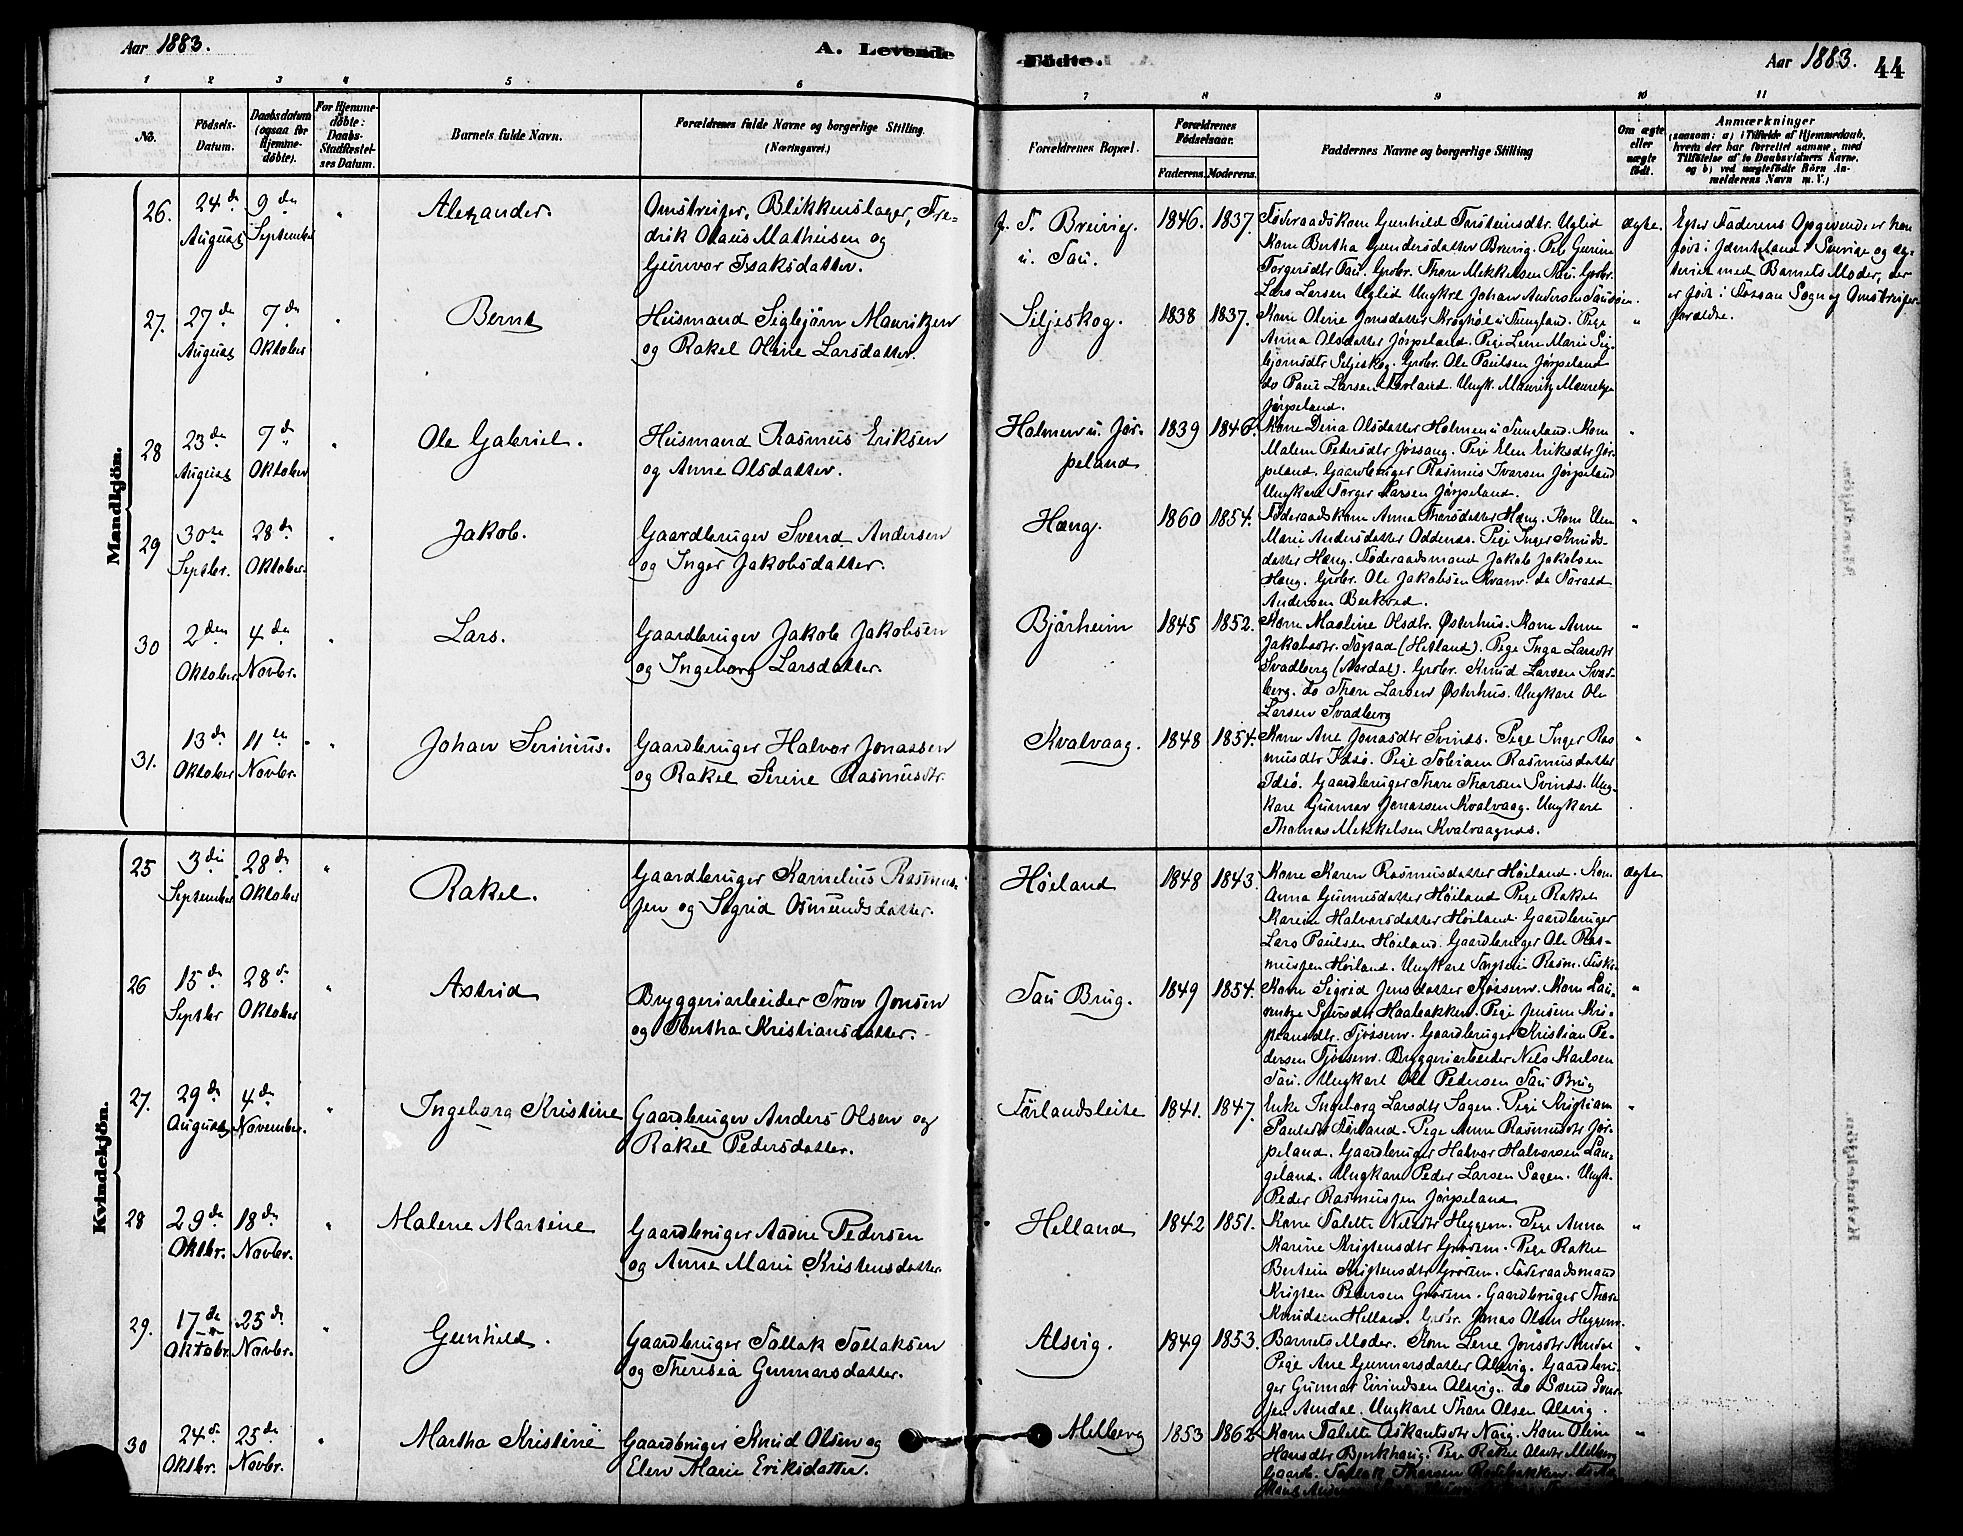 Aar 1883.
A. Levende
Fødte.
Aar 1883.
44
1 2 3 4 5 6 7 8 9 10 11
No.
Fødsels-
Datum.
Daabsdatum
(ogsaa for
Hjemme-
døbte).
For Hjemme-
døbte:
Daabs-
Stadfæstel-
ses Datum.
Barnets fulde Navn.
Forældrenes fulde Navne og borgerlige Stilling.
(Næringsvei.)
Forældrenes Bopæl.
Forældrenes
Fødselsaar.
Faderens. Moderens.
Faddernes Navne og borgerlige Stilling
Om ægte
eller
uægte
født.
Anmærkninger
(saasom: a) i Tilfælde af Hjemmedaab,
hvem der har forrettet samme, med
Tilføielse af to Daabsvidners Navne,
og b) ved uægtefødte Børn An-
melderens Navn m. V.)
Mandkjøn.
26. 24de August 9de September " Alexander.
Omstreifer, Blikkenslager, Fre-
drik Olaus Mathisen og
Gunvor Isaksdatter.
f. T. Breivig.
u. Tau.
1846. 1837.
Føderaadskone Gunhild Torsteinsdtr. Uglid
Kone Bertha Gundersdatter Brevig. Pige Gurine
Torgersdtr Tau. Grbr. Thore Mikkelsen Tau. Grbr.
Lars Larsen Uglid Ungkrl Johan Andersen
ægte.
Efter Faderens Opgivende er han
født i Jæmteland i Sverige og
med Barnets Moder, der
er født i Fossan Sogn af Omstreifer-
forældre.
27. 27de August 7de Oktober " Bernt
Husmand Sigbjørn Mauritzen
og Rakel Oline Larsdatter.
Seljeskog.
1838 1837.
Kone Oline Jonsdatter u. Tungland. Pige
Anna Olsdatter Jørpeland. Pige Lene Marie Sig-
bjørnsdtr Seljeskog. Grbr. Ole Paulsen Jørpeland
do Paul Larsen Førland. Ungk. Mauritz Mauritzen
Jørpeland.
"
28 23de August 7de Oktober " Ole Gabriel.
Husmand Rasmus Eriksen
og Anne Olsdatter.
Holmen u. Jør-
peland
1839 1846.
Kone Dina Olsdatter Holmen u. Tungland. Kone
Malene Pedersdtr Jøssang. Pige Elen Eriksdtr Jør-
peland. Gaardbruger Rasmus Ivarsen Jørpeland
Ungkarl Torger Larsen Jørpeland.
"
29 30te Septbr. 28de Oktober. " Jakob.
Gaardbruger Svend Andersen
og Inger Jakobsdatter.
Hæng.
1860 1854.
Føderaadskone Anna Thorsdatter Hæng. Kone Elen
Marie Andersdatter Oddenes. Pige Inger Knuds-
datter Hæng. Føderaadsmand Jakob Jakobsen
Hæng. Grbr. Ole Jakobsen Kvam. do Tarald
Andersen Berkved.
"
30 2den Oktober 4de Novbr. " Lars.
Gaardbruger Jakob Jakobsen
og Ingeborg Larsdatter.
Bjørheim
1845 1852.
Kone Maline Olsdtr. Østerhus. Kone Anne
Jakobsdtr. (Hetland). Pige Inga Larsdtr
Svadberg (Aardal). Grbr. Knud Larsen Svad-
berg. do Thore Larsen Østerhus. Ungkarl Ole
Larsen Svadberg
"
31. 13de Oktober 11te Novbr. " Johan Serinius.
Gaardbruger Halvor Jonassen
og Rakel Serine Rasmusdtr.
Kvalvaag.
1848 1854.
Kone Ane Jonasdtr Svinds. Pige Inger Ras
musdtr Idsø. Pige Tobiam Rasmusdatter
Idsø. Gaardbruger Thore Thorsen Svinds. Ung-
karl Gunnar Jonassen Kvalvaag. Ungkarl
Thomas Mikkelsen Kvalvaagnes.
"
Kvindekjøn.
25 3die September 28de Oktober " Rakel.
Gaardbruger Kornelius Rasmus-
sen og Sigrid Osmundsdatter.
Høiland
1848 1843.
Kone Karen Rasmusdatter Høiland. Kone
Anna Gunnusdatter Høiland Pige Rakel
Karine Halvorsdatter Høiland. Gaardbruger
Lars Paulsen Høiland. Gaardbruger Ole Ras-
mussen Høiland. Ungkarl Torstein Rasm. Fiske
ægte
26 15de Septbr 28de Oktober " Astrid
Bryggeriarbeider Tron Jonsen
og Bertha Kristiansdatter.
Tau Brug.
1849 1854.
Kone Sigrid Jensdatter Tjøssem. Kone Lau-
Haabakken. Pige Jensine Kri-
stiansdtr. Tjøssem. Gaardbruger Kristian Pe-
dersen Tjøssem. Bryggeriarbeider Nels Karlsen
Tau. Ungkarl Ole Pedersen Tau Brug
"
27. 29de August 4de November. " Ingeborg Kristine
Gaardbruger Anders Olsen og
Rakel Pedersdatter.
Førlandsleite
1841. 1847.
Enke Ingeborg Larsdtr Sagen. Pige Kristiane
Paulsdtr Førland. Pige Anne Rasmusdtr Jør-
peland. Gaardbruger Halvor Halvorsen Lan-
geland. Ungkarl Peder Larsen Sagen. Ungk.
Peder Rasmussen Jørpeland
"
28 29de Oktbr. 18de Novbr. " Malene Martine
Gaardbruger Aadne Pedersen
og Anne Marie Kristensdatter
Helland
1842 1851.
Kone Talette Nilsdtr Heggem. Pige Anna
Karine Kristensdtr Grødem. Pige Rakel
Bertine Kristensdtr Grødem. Føderaadsmand
Kristen Pedersen Grødem. Gaardbruger Thore
Knudsen Helland. Grbr. Jonas Olsen Heggem.
"
29. 17de Oktobr. 25de Novbr. " Gunhild.
Gaardbruger Tollak Tollaksen
og Theresia Gunnarsdatter.
Alsvig.
1849 1853.
Barnets Moder. Kone Lene Jonsdtr Amdal
Pige Ane Gunnarsdatter Alsvig. Gaardbru-
ger Gunnar Eivindsen Alsvig. do Svend Svend-
sen Amdal. Ungkarl Thore Olsen Alsvig.
"
30 24de Oktbr. 25de Novbr. " Martha Kristine
Gaardbruger Knud Olsen og
Elen Marie Eriksdatter.
Melberg
1853 1862
Kone Talette Næig. Kone Oline
Hansdtr Bjerkhaug. Pige Rakel Olsdtr Melberg
Gaardb. Tollak Thorsen
"